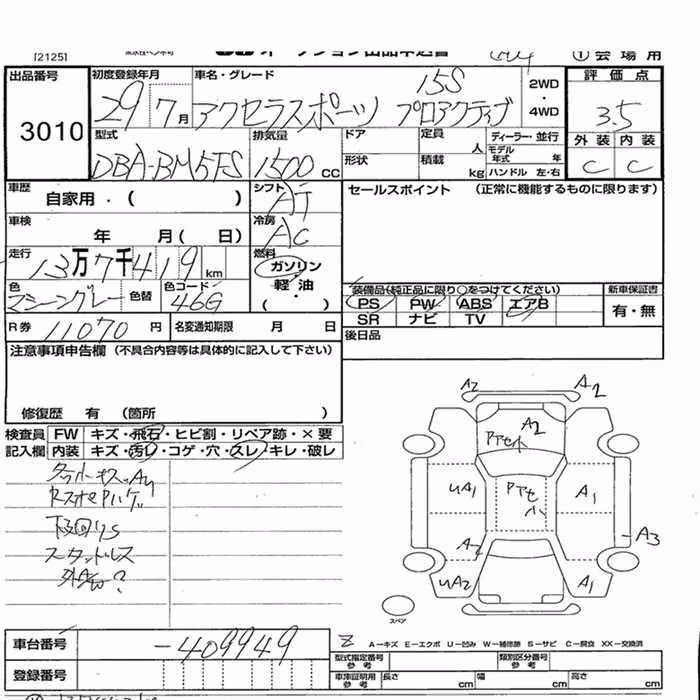 [2125]
①会場用
出品番号 3010
初度登録年月 29年7月
車名・グレード アクセラスポーツ 15S プロアクティブ
2WD・4WD
評価点 3.5
外装 C 内装 C
型式 DBA-BM5FS
排気量 1500 CC
ドア 形状
定員 人 積載 kg
ディーラー・並行
モデル年式 年
ハンドル 左・右
車歴 自家用・( )
シフト AT
セールスポイント (正常に機能するものに限ります)
車検 年 月( 日)
冷房 AC
走行 13万7千419km
燃料 ガソリン 軽・油 ( ・ )
色 マシーングレー 色替 色コード 46G
装備品(純正品に限り○をつけてください)
PS PW ABS エアB
SR ナビ TV
新車保証書 有・無
R券 11070円 名変通知期限 月 日
後日品
注意事項申告欄 (不具合内容等は具体的に記入して下さい)
修復歴 有 (箇所 )
検査員 FW キズ・飛石・ヒビ割・リペア跡・×要
記入欄 内装 キズ・汚レ・コゲ・穴・スレ・キレ・破レ
スタットレス
A2 A2
A2
UA1 A1
A2 A3
UA2 A1
スペア
車台番号 -409949
A-キズ E-エクボ U-凹み W-補修跡 S-サビ C-腐食 XX-交換済
登録番号
型式指定番号 参考
類別区分番号 参考
車庫証明用 参考 長さ cm 幅 cm 高さ cm